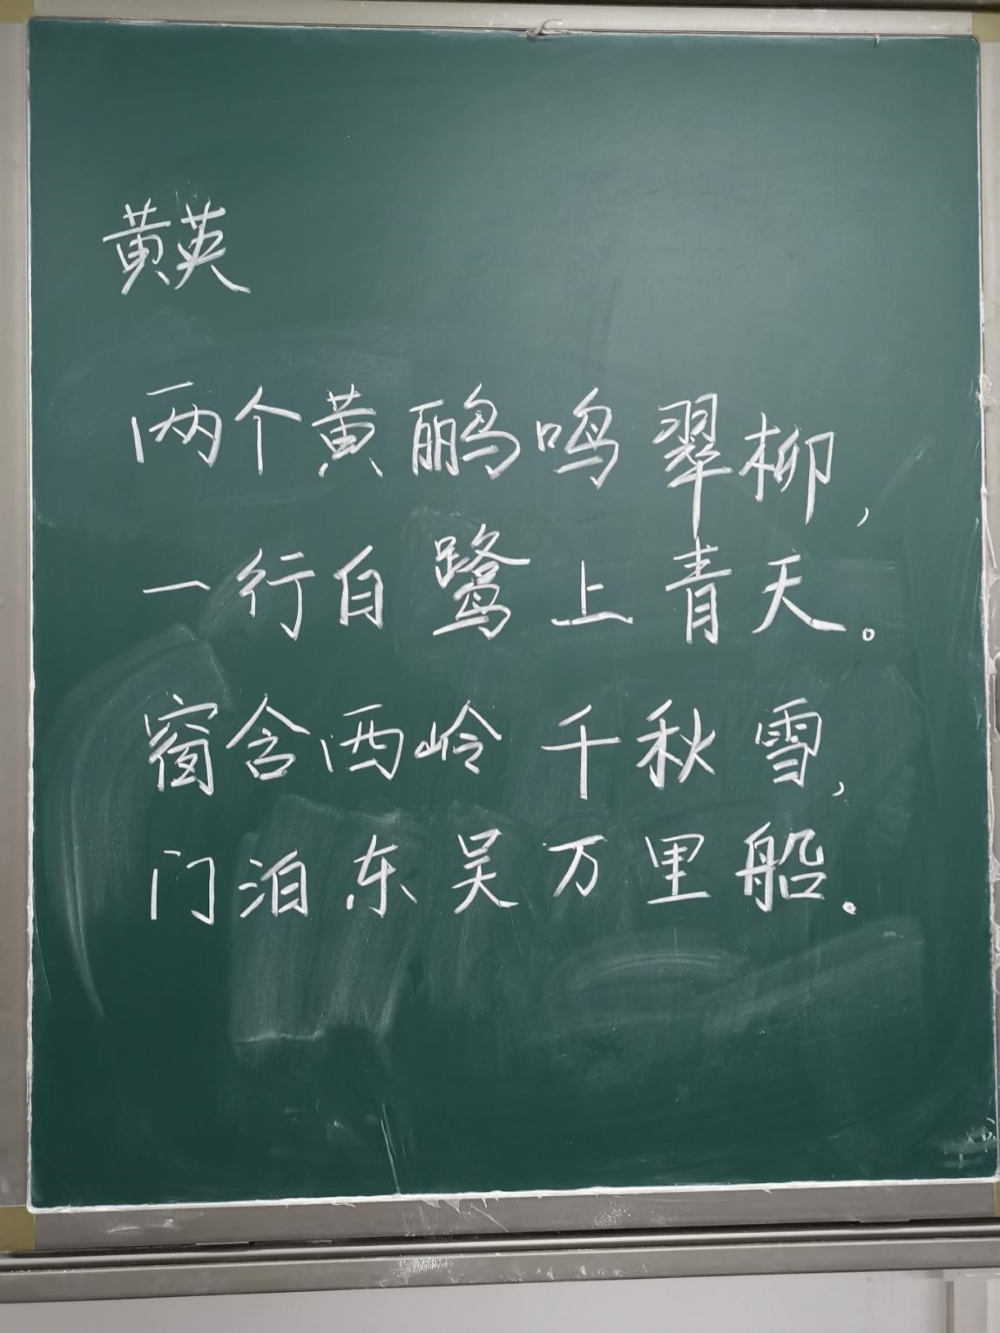 黄英
两个黄鹂鸣翠柳，
一行白鹭上青天。
窗含西岭千秋雪，
门泊东吴万里船。